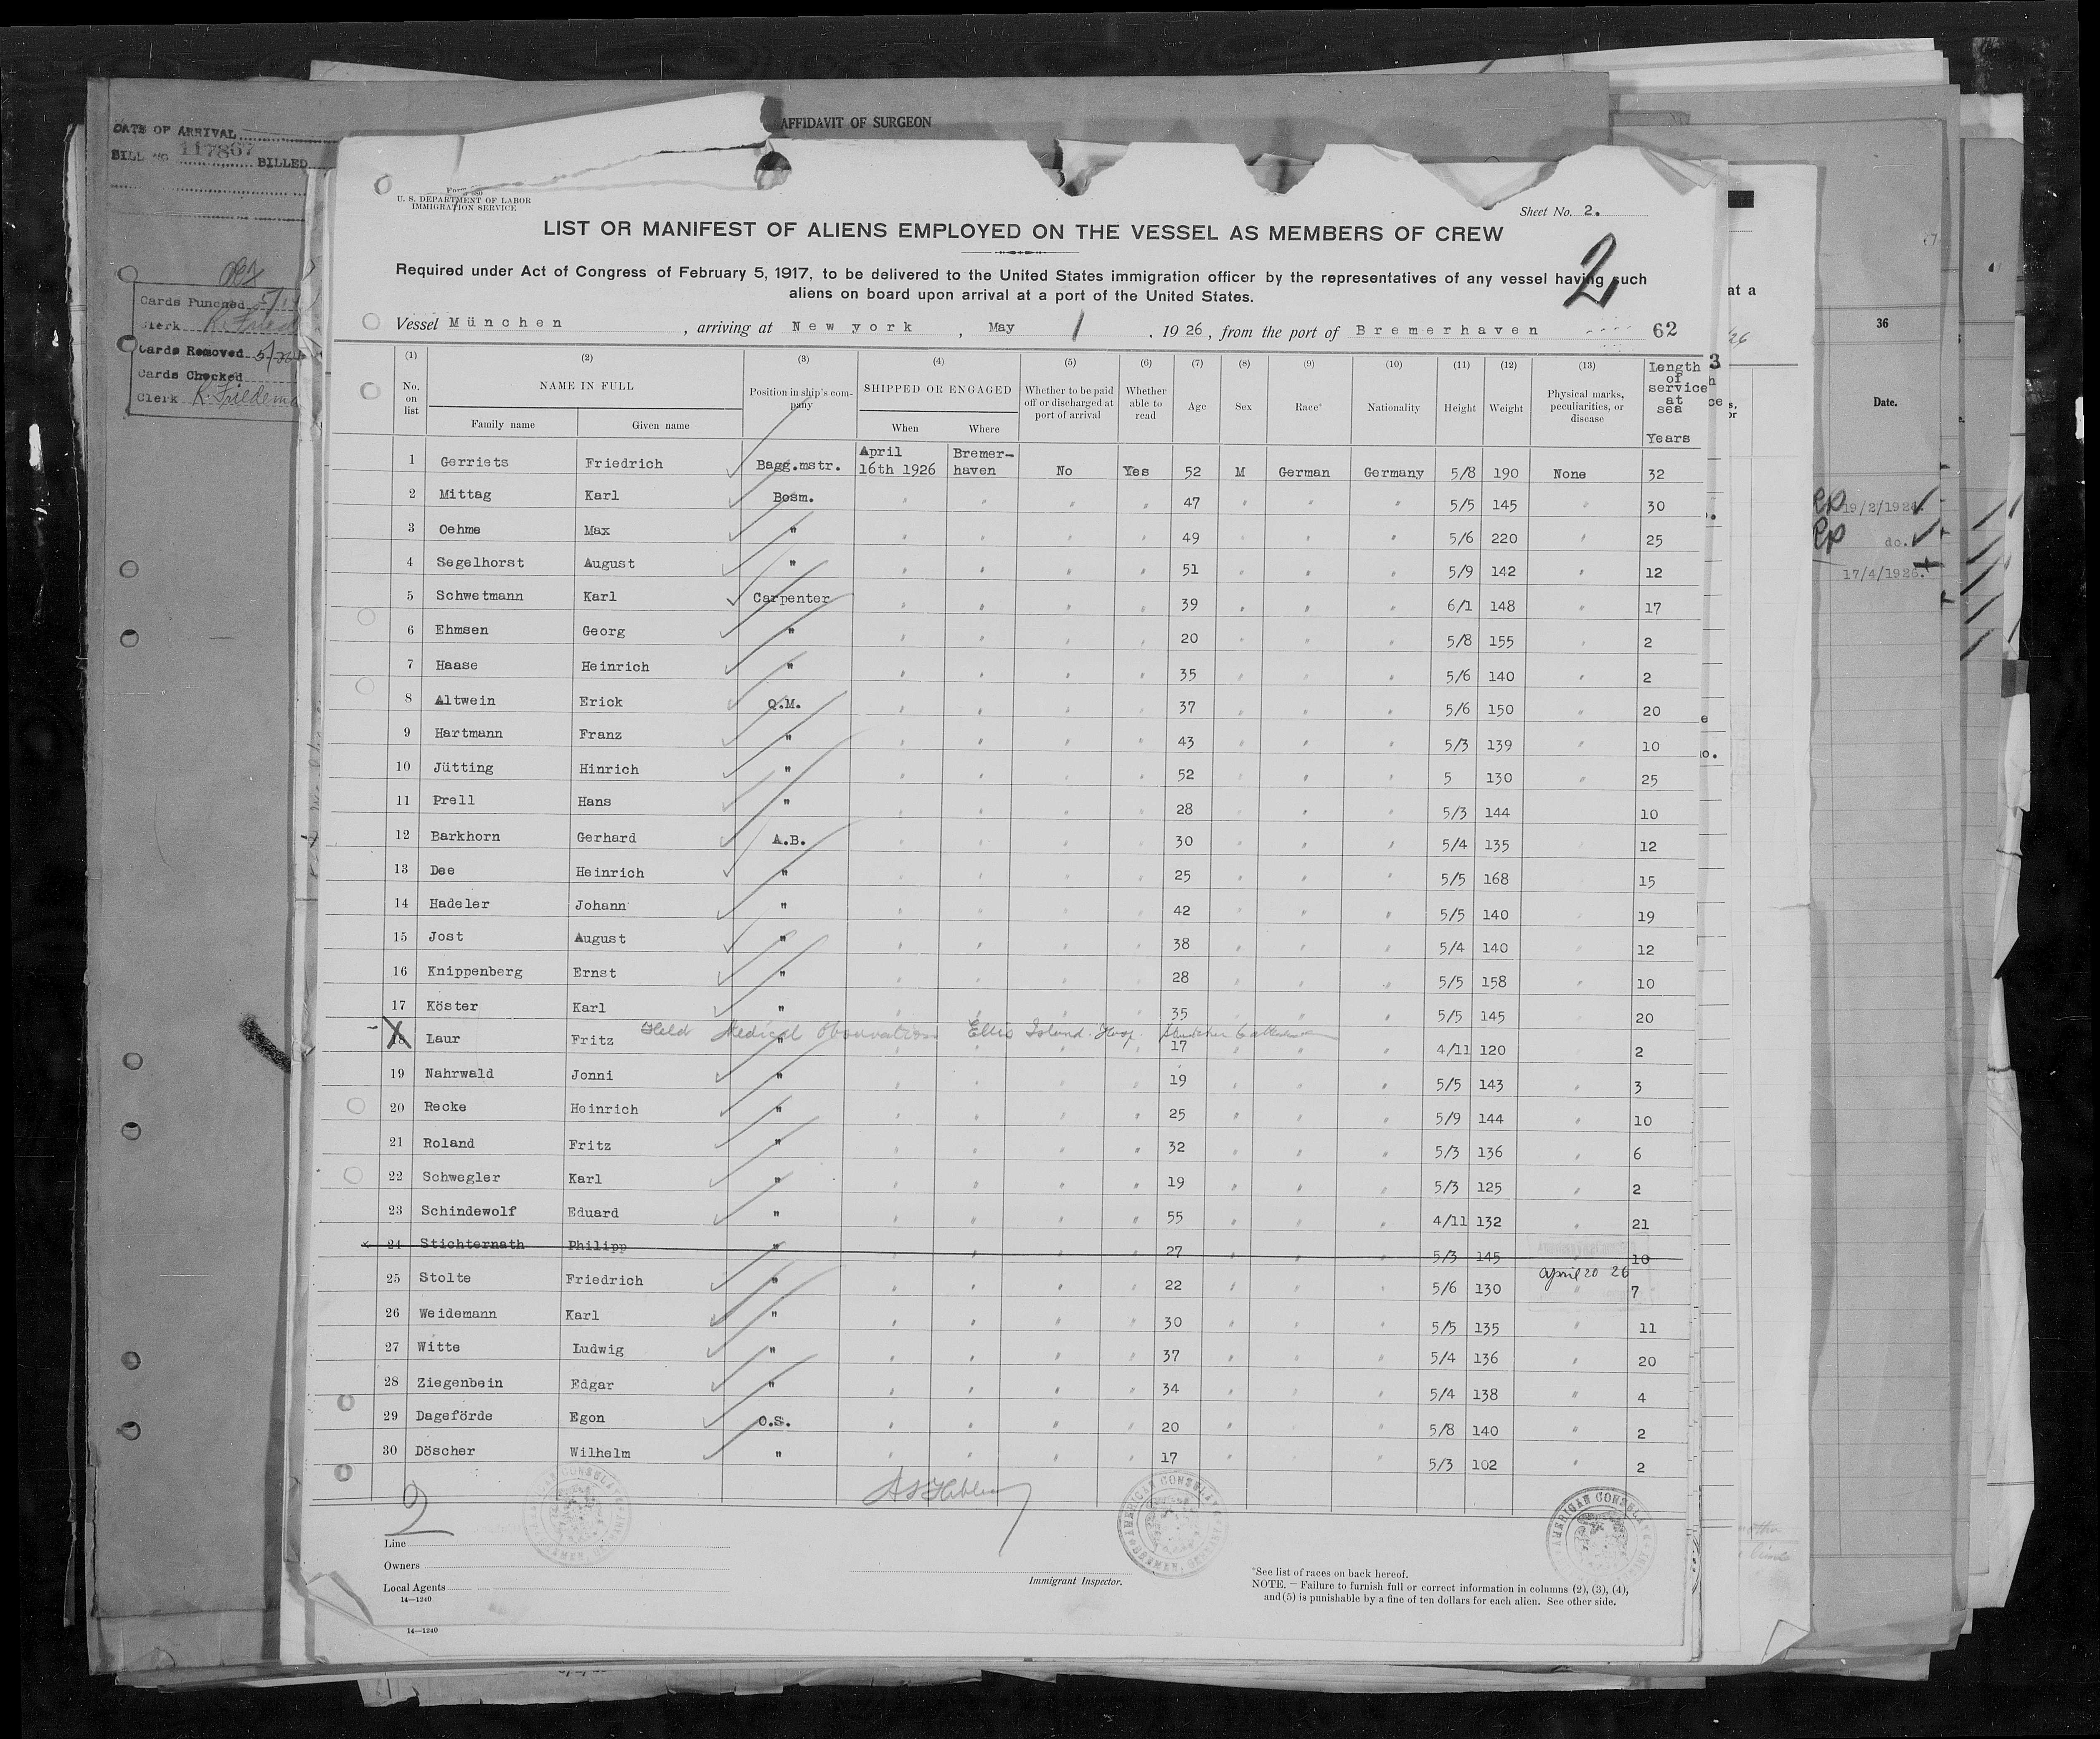 AFFIDAVIT OF SURGEON
DATE OF ARRIVAL
BILL NO 117867 BILLED
Cards Punched
Clerk
Cards Removed
Cards Checked
Clerk R. Friedema
U. S. DEPARTMENT OF LABOR
IMMIGRATION SERVICE
Sheet No. 2.
LIST OR MANIFEST OF ALIENS EMPLOYED ON THE VESSEL AS MEMBERS OF CREW
2
Required under Act of Congress of February 5, 1917, to be delivered to the United States immigration officer by the representatives of any vessel having such
aliens on board upon arrival at a port of the United States.
Vessel München, arriving at New york, May 1, 1926, from the port of Bremerhaven 62
(1) No. on list (2) NAME IN FULL Family name Given name (3) Position in ship's company (4) SHIPPED OR ENGAGED When Where (5) Whether to be paid off or discharged at port of arrival (6) Whether able to read (7) Age (8) Sex (9) Race* (10) Nationality (11) Height (12) Weight (13) Physical marks, peculiarities, or disease Length of service at sea Years
1 Gerriets Friedrich Bagg.mstr. April 16th 1926 Bremerhaven No Yes 52 M German Germany 5/8 190 None 32
2 Mittag Karl Bosm. " " " " 47 " " " 5/5 145 " 30
3 Oehme Max " " " " " 49 " " " 5/6 220 " 25
4 Segelhorst August " " " " " 51 " " " 5/9 142 " 12
5 Schwetmann Karl Carpenter " " " " 39 " " " 6/1 148 " 17
6 Ehmsen Georg " " " " " 20 " " " 5/8 155 " 2
7 Haase Heinrich " " " " " 35 " " " 5/6 140 " 2
8 Altwein Erick Q.M. " " " " 37 " " " 5/6 150 " 20
9 Hartmann Franz " " " " " 43 " " " 5/3 139 " 10
10 Jütting Hinrich " " " " " 52 " " " 5 130 " 25
11 Prell Hans " " " " " 28 " " " 5/3 144 10
12 Barkhorn Gerhard A.B. " " " " 30 " " " 5/4 135 12
13 Dee Heinrich " " " " " 25 " " " 5/5 168 15
14 Hadeler Johann " " " " " 42 " " " 5/5 140 19
15 Jost August " " " " " 38 " " " 5/4 140 12
16 Knippenberg Ernst " " " " " 28 " " " 5/5 158 10
17 Köster Karl " " " " " 35 " " " 5/5 145 20
Held Medical Observation Ellis Island Hosp
18 Laur Fritz " 17 " " " 4/11 120 2
19 Nahrwald Jonni " " " " " 19 " " " 5/5 143 " 3
20 Recke Heinrich " " " " " 25 " " " 5/9 144 " 10
21 Roland Fritz " " " " " 32 " " " 5/3 136 " 6
22 Schwegler Karl " " " " " 19 " " " 5/3 125 " 2
23 Schindewolf Eduard " " " " " 55 " " " 4/11 132 " 21
24 Stichternath Philipp " " " " " 27 " " " 5/3 145 " 10
April 20 26
25 Stolte Friedrich " " " " " 22 " " " 5/6 130 " 7
26 Weidemann Karl " " " " " 30 " " " 5/5 135 " 11
27 Witte Ludwig " " " " " 37 " " " 5/4 136 " 20
28 Ziegenbein Edgar " " " " " 34 " " " 5/4 138 " 4
29 Dageförde Egon O.S. " " " " 20 " " " 5/8 140 " 2
30 Döscher Wilhelm " " " " " 17 " " " 5/3 102 " 2
2
AMERICAN CONSULATE
BREMEN, GERMANY
Line
Owners
Local Agents
14—1240
Immigrant Inspector.
*See list of races on back hereof.
NOTE.—Failure to furnish full or correct information in columns (2), (3), (4),
and (5) is punishable by a fine of ten dollars for each alien. See other side.
14—1240
at a
3
36
Date.
19/2/1926.
do.
17/4/1926.